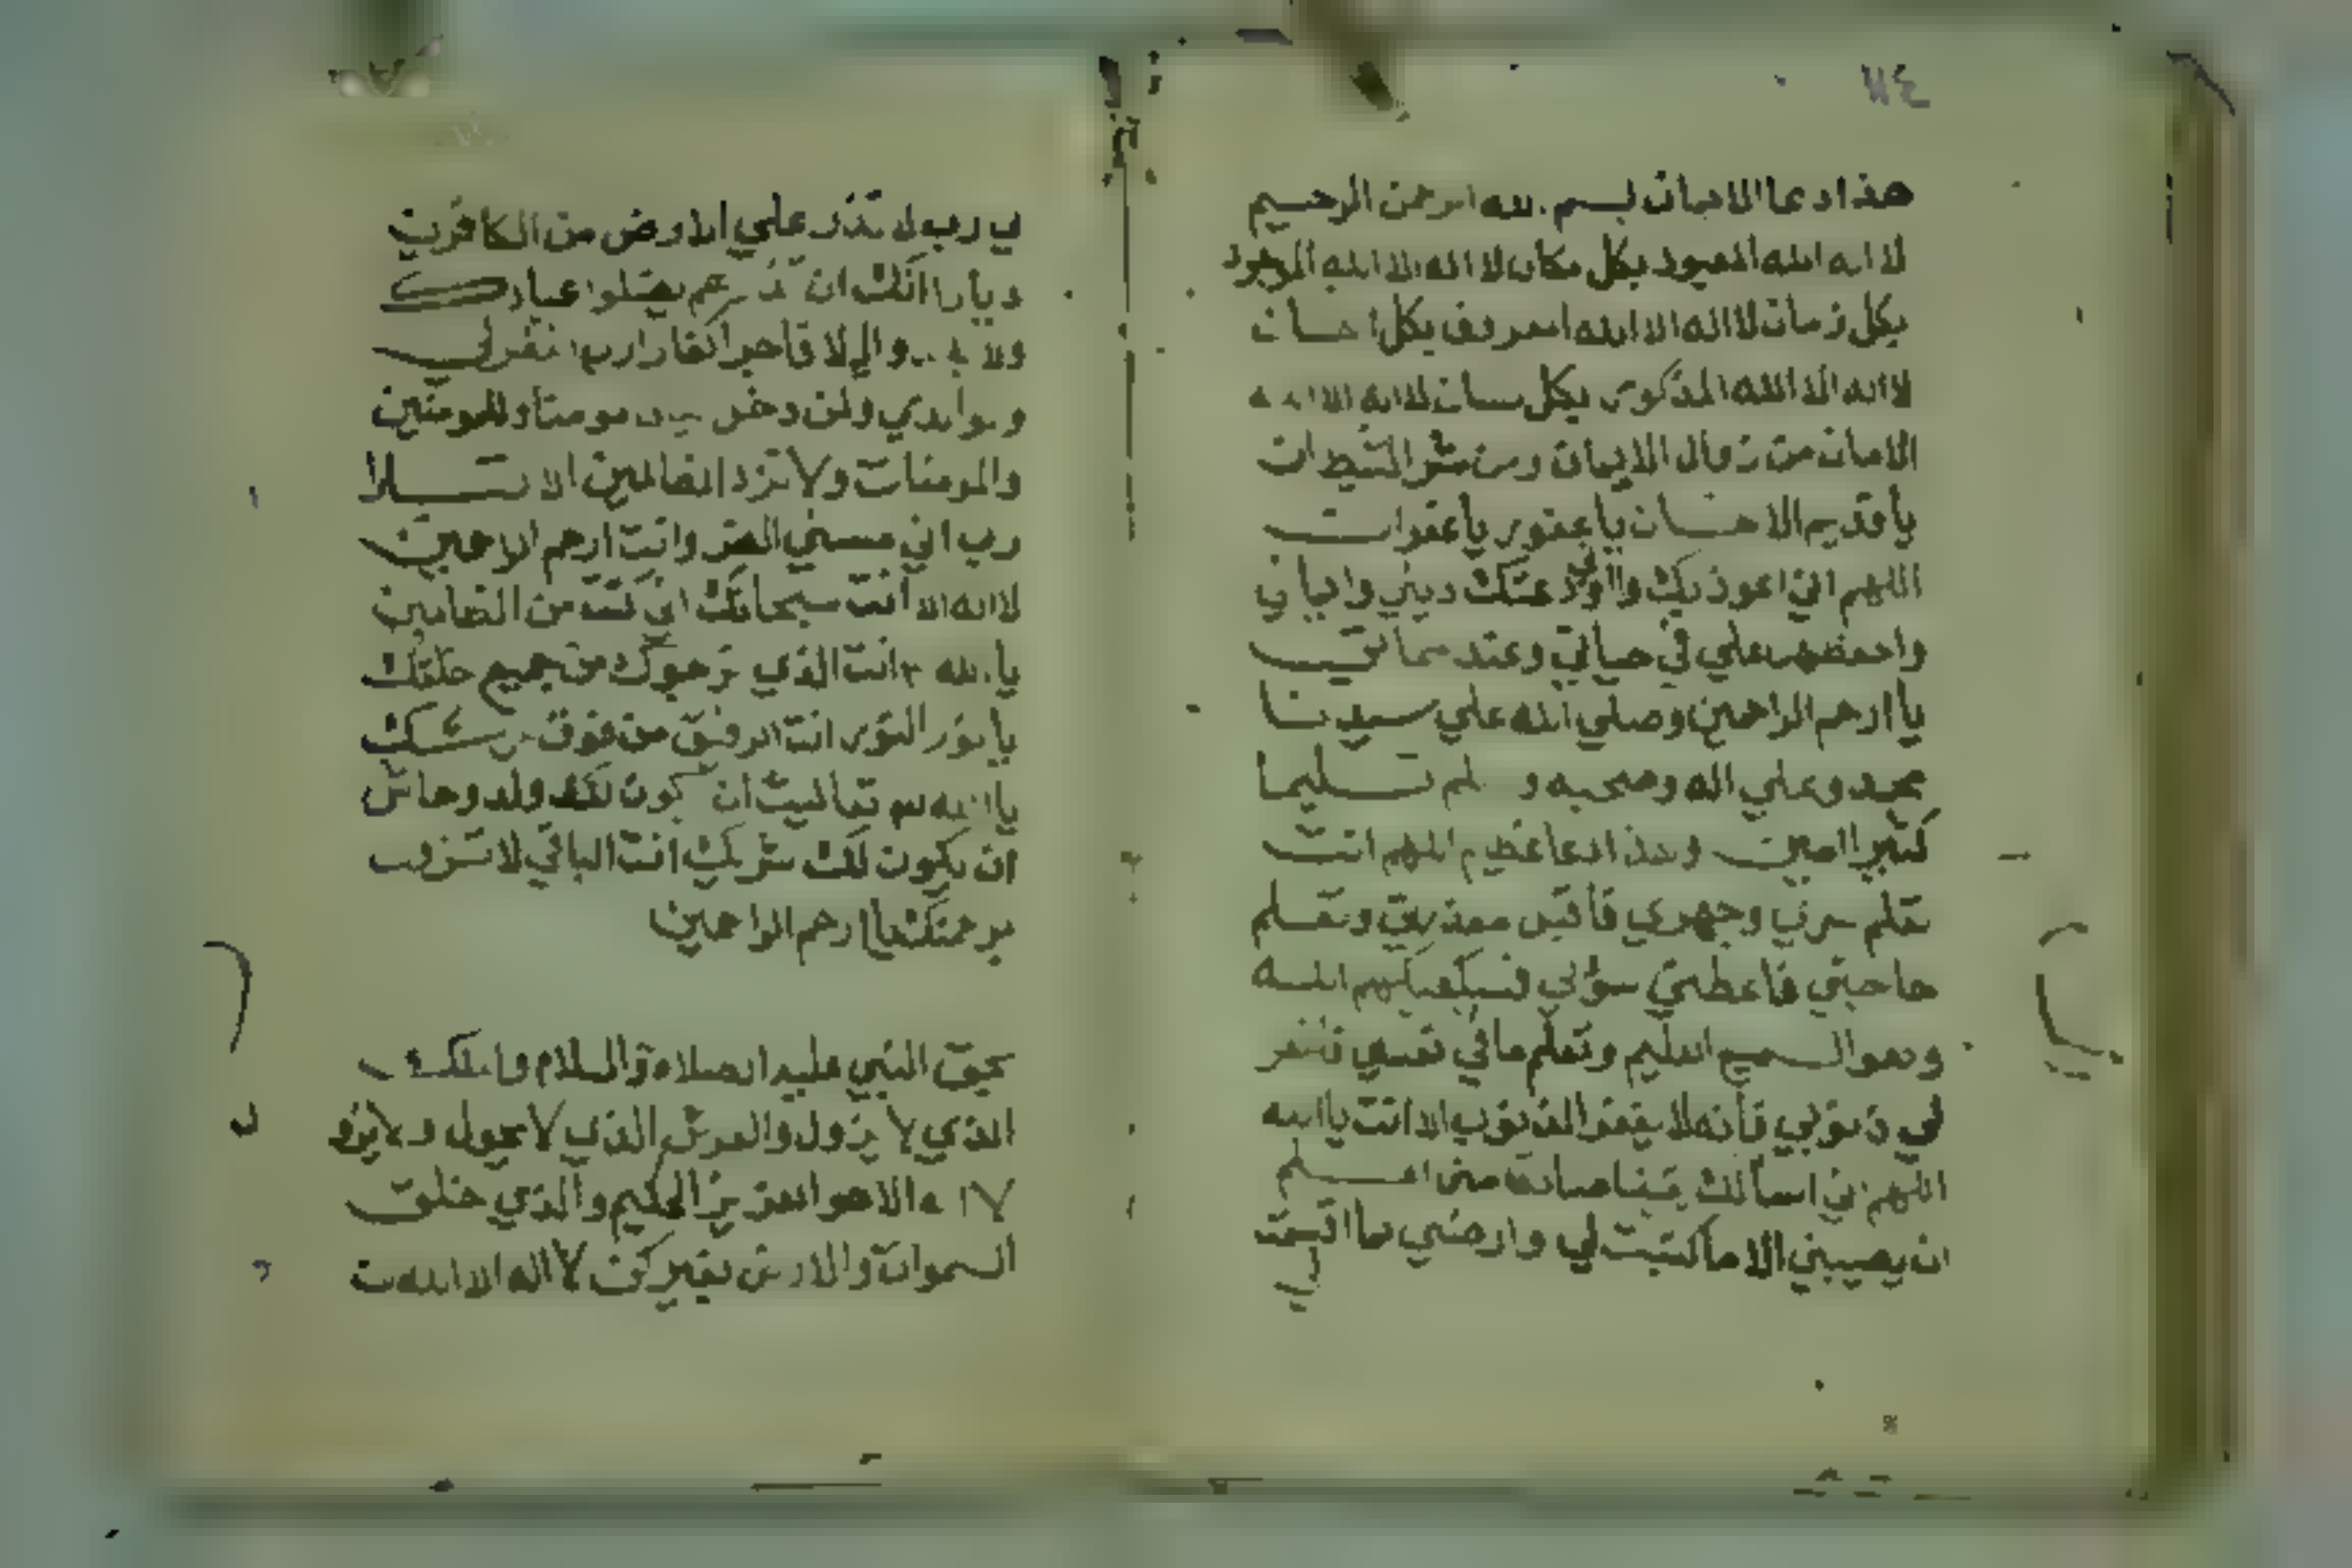 هذا دعا الايمان بسم الله الرحمن الرحيم
لا اله الا الله المعبود بكل مكان لا اله الا الله الموجود
بكل زمان لا اله الا الله المعروف بكل احسان
لا اله الا الله المذكور بكل لسان لا اله الا الله
الامان من زوال الايمان ومن شر الشيطان
يا قديم الاحسان يا غفور يا غفران
اللهم اني اعوذ بك واودعتك ديني وايماني
واحفظهم علي في حياتي وعند مماتي
يا ارحم الراحمين وصلي الله علي سيدنا
محمد وعلي اله وصحبه وسلم تسليما
كثيرا امين وهذا دعا عظيم اللهم انت
تعلم سري وجهري فاقبل معذرتي وتعلم
حاجتي فاعطني سؤلي فسيكفيكهم الله
وهو السميع العليم وتعلم ما في نفسي فاغفر
لي ذنوبي فانه لا يغفر الذنوب الا انت يا الله
اللهم اني اسالك حتى اعلم
ان يصيبني الا ما كتبت لي وارضني بما اقسمت
لي
لي رب لا تذر علي الارض من الكافرين
ديارا انك ان تذرهم يضلوا عبادك
ولا يلدوا الا فاجرا كفارا رب اغفر لي
ولوالدي ولمن دخل بيتي مومنا وللمومنين
والمومنات ولا تزد الظالمين الا تبارا
رب اني مسني الضر وانت ارحم الراحمين
لا اله الا انت سبحانك اني كنت من الظالمين
يا الله انت الذي نرجوك من جميع خلقك
يا نور النور انت الرفيق من فوق عرشك
يا الله تعاليت ان يكون لك ولد وحاش
ان يكون لك شريك انت الباقي لا تزول
برحمتك يا ارحم الراحمين
بحق النبي عليه الصلاة والسلام والملك
الذي لا يزول والعرش الذي لا يحول ولا يزو
لا اله الا هو العزيز الحكيم والذي خلق
السموات والارض بغير لا اله الا الله